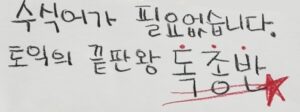 수식어가 필요없습니다.
토익의 끝판왕 독종반